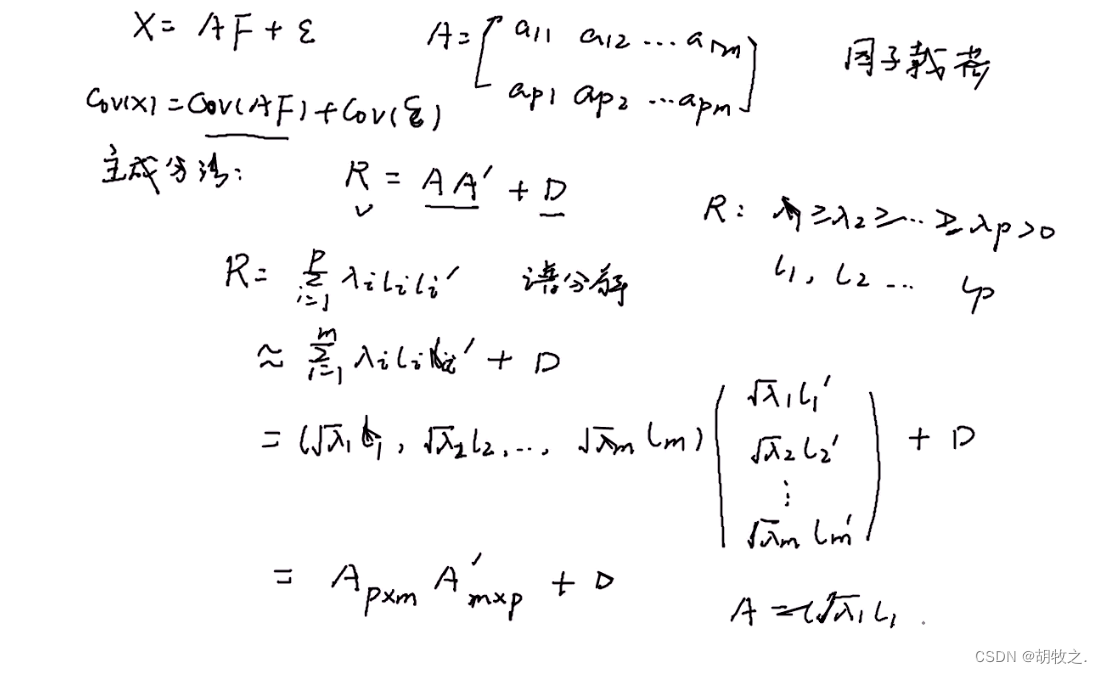 X = AF + ε
A = [ a11 a12 … a1m
ap1 ap2 … apm ]
因子载荷
Cov(X) = Cov(AF) + Cov(ε)
主成分法:
R = AA′ + D
R: λ1 ≥ λ2 ≥ … ≥ λp > 0
l1, l2 … lp
R = Σ_{i=1}^{p} λi li li′ 谱分解
≈ Σ_{i=1}^{m} λi li li′ + D
= (√λ1 l1, √λ2 l2, …, √λm lm) ( √λ1 l1′
√λ2 l2′
⋮
√λm lm′ ) + D
= A_{p×m} A′_{m×p} + D
A = (√λ1 l1
CSDN @胡牧之.